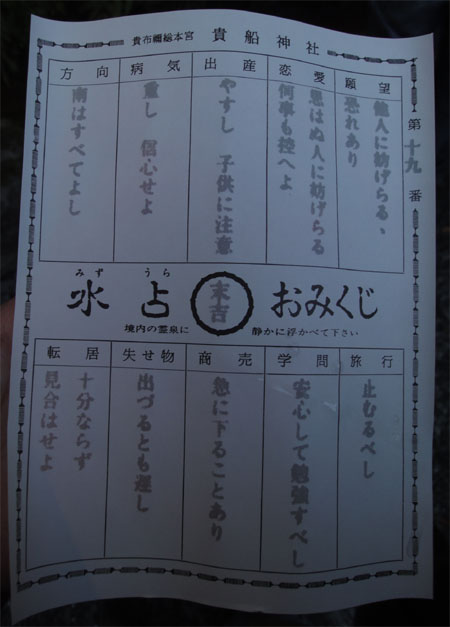 貴布禰総本宮 貴船神社
第十九番
願望
他人に妨げらるゝ
恐れあり
恋愛
思はぬ人に妨げらる
何事も控へよ
出産
やすし 子供に注意
病気
重し 信心せよ
方向
南はすべてよし
水占 おみくじ
みず うら
末吉
境内の霊泉に 静かに浮かべて下さい
旅行
止むるべし
学問
安心して勉強すべし
商売
急に下ることあり
失せ物
出づるとも遅し
転居
十分ならず
見合はせよ